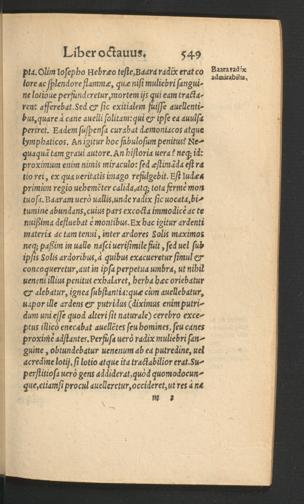 Liber octauus. 549
pta. Olim Iosepho Hebræo teste, Baara radix erat co
lore ac splendore flammæ, quæ nisi muliebri sangui-
ne lotioue perfunderetur, mortem ijs qui eam tracta-
rent afferebat. Sed & sic exitialem fuisse auellenti-
bus, quare à cane auelli solitam: qui & ipse ea auulsa
periret. Eadem suspensa curabat dæmoniacos atque
lymphaticos. An igitur hoc fabulosum penitus? Ne-
quaquā tam graui autore. An historia uera? neq; id:
proximum enim nimis miraculo: sed æstimāda est ra
tio rei, ex qua ueritatis imago refulgebit. Est Iudæa
primùm regio uehemēter calida, atq; tota fermè mon
tuosa. Baaram uerò uallis, unde radix sic uocata, bi-
tumine abundans, cuius pars excocta immodicè ac te
nuissima defluebat è montibus. Ex hac igitur ardenti
materia ac tam tenui, inter ardores Solis maximos
neq; paßim in ualle nasci uerisimile fuit, sed uel sub
ipsis Solis ardoribus, à quibus exacueretur simul &
concoqueretur, aut in ipsa perpetua umbra, ut nihil
ueneni illius penitus exhalaret, herba hæc oriebatur
& alebatur, ignea substantia: quæ cùm auellebatur,
uapor ille ardens & putridus (diximus enim putri-
dum uni esse quod alteri sit naturale) cerebro exce-
ptus illicò enecabat auellētes seu homines, seu canes
proximè adstantes. Perfusa uerò radix muliebri san-
guine, obtundebatur uenenum ab ea putredine, uel
acredine lotij, si lotio atque ita tractabilior erat. Su-
perstitiosa uerò gens addiderat, quòd quomodocun-
que, etiamsi procul auelleretur, occideret, ut res à na
m 3
Baara radix
admirabilis.